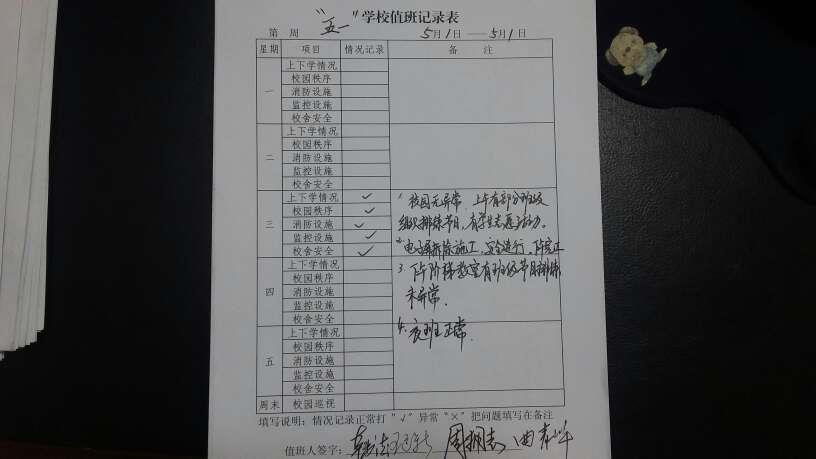 "五一"学校值班记录表
第 周 5月1日——5月1日
星期 项目 情况记录 备 注
一 上下学情况
校园秩序
消防设施
监控设施
校舍安全
二 上下学情况
校园秩序
消防设施
监控设施
校舍安全
三 上下学情况 ✓ 1. 校园无异常，上午有部分班级
校园秩序 ✓ 组织排练节目，有学生志愿活动。
消防设施 ✓
监控设施 ✓ 2. 拆除施工，安全进行，
校舍安全 ✓
四 上下学情况 3. 阶梯教室有班级节目排练
校园秩序
消防设施 未异常。
监控设施
校舍安全
五 上下学情况 4. 夜班正常.
校园秩序
消防设施
监控设施
校舍安全
周末 校园巡视
填写说明：情况记录正常打"√"异常"×"把问题填写在备注
值班人签字：